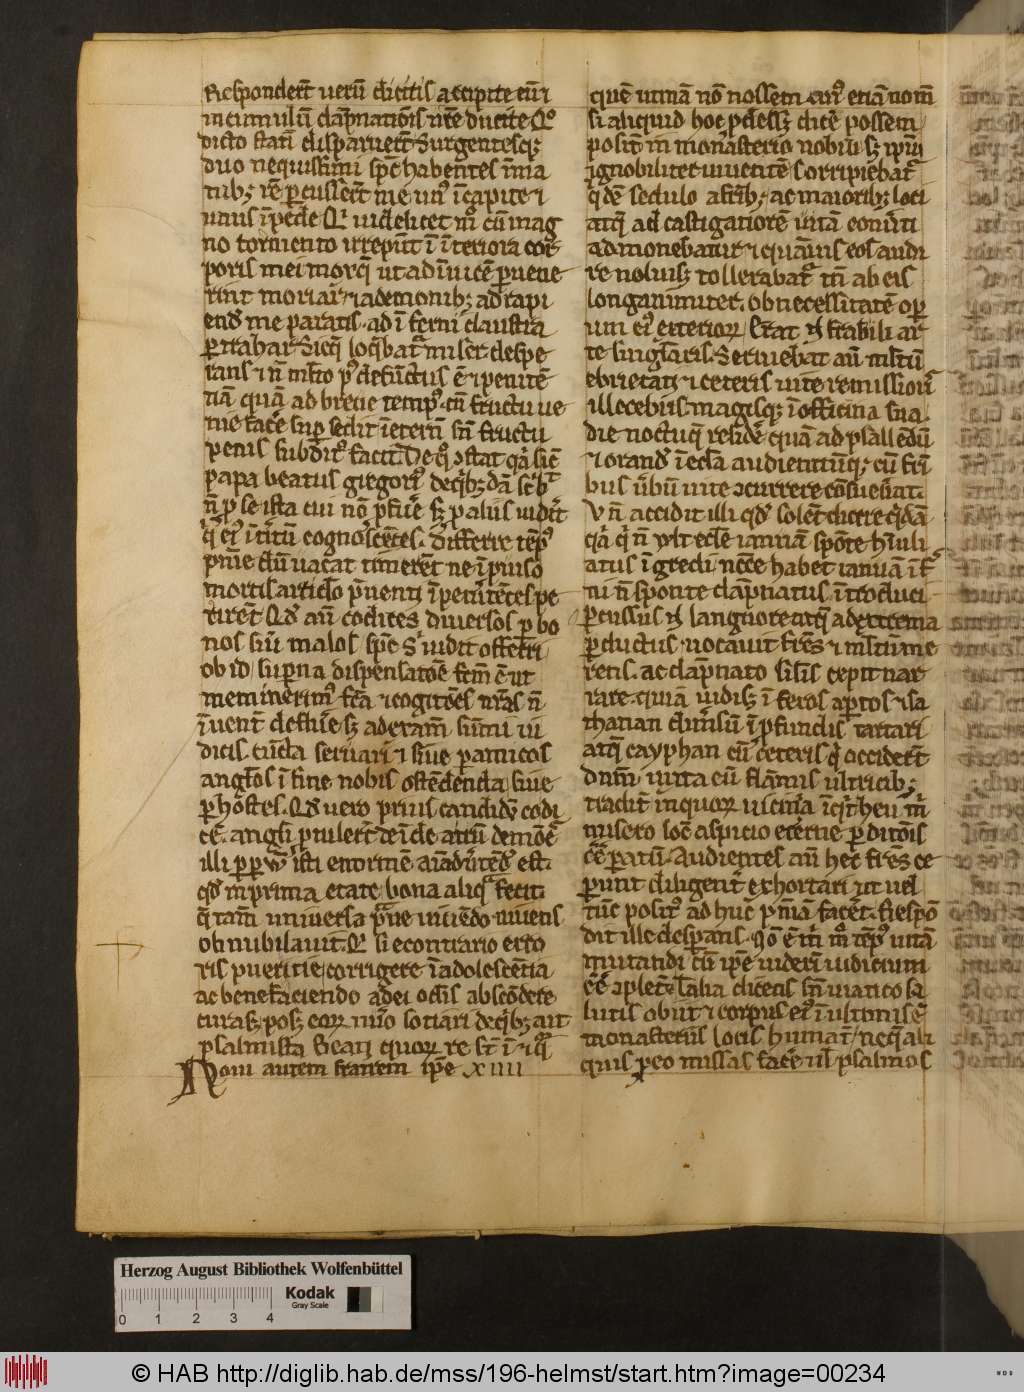 Respondert̄ verū dicitis accipite eū ⁊
in cumulū dāpnationis vr̄e ducite Qͦ
dicto statī disparuert̄ Surgentesqꝫ
duo nequissimi spc̄ habentes ī ma
nibꝫ ꝑcusser̄t me vnꝰ ī capite ⁊
vnus ī pede videlicet mͦ cū mag
no tormento irrepūt ī īteriora cor
poris mei moxqꝫ ut ad īuicē ꝑuene
rint moriar ⁊ a demonibꝫ ad rapi
end̄ me paratis ad īferni claustra
ꝑtrahar Sicqꝫ loqͣbatᷣ miser despe
rans ⁊ nͦ ml̄to pꝰ defūctus ē ⁊ penitē
nā quā ad breue tempꝰ cū fructu ve
nie facͤe suꝑsedit īetern̄ sn̄ fructu
penis subditꝰ facit De qͦ ꝯstat qꝛ sic̄
papa beatus gregoriꝰ de qͥbꝫdā sc̄bit
nͦ ꝓ se ista cui nō ꝓfuͤe sꝫ ꝓ aliis viderit
qͥ eiꝰ īteritū cognoscētes differre tēpꝰ
pnīe dū vacat timerēt ne īprouiso
mortis articlo p̄uenti īpenitētes pe
rirēt Qd̄ aū codices diuersos ꝑ bo
nos siu̅ malos sp̄c sͥ vidit offerri
ob id suꝑna dispensatōe fcm̄ ē ut
meminerimꝰ fcā ⁊ cogitōes nr̄as nͦ
ī uentū defluͤe sꝫ ad exam̄ sūmi iu
dicis cūcta seruari ⁊ siue ꝑ amicos
angl̄os ī fine nobis ostēdenda siue
ꝑ hostes Qd̄ vero prius candidū codi
cē angl̄i ꝓtulert̄ deīde atrū demōes
illi ꝑpūm isti enormē aīaduͤtēd̄ est
qd̄ in prima etate bona aliqͣ fecit
q̄ tam̄ vniuersa praue viuēdo iuuenis
obnubilauit Qͥ si econtrario erro
ris puericie corrigere ī adolescētia
ac benefaciendo a dei oclis abscōdere
curasꝫ posꝫ eorum nūo sotiari de qͥbꝫ ait
psalmista Beati quorum re st̄ ī ⁊ qͣ
Noui autem fratrem ip̄e xiiii
quē vtinā nō nossem cuiꝰ etiā nom̄
si aliquid hoc ꝓdessꝫ dicͤe possem
posit̄ in monasterio nobili sꝫ ip̄m
ignobiliter viuentē Corripiebatᷣ
qͥdē sedulo a frībꝫ ac maioribꝫ loci
atqꝫ ad castigatiorē vitā conuͤti
admonebatur ⁊ quāuis eos audi
re noluisꝫ tollerabatᷣ tn̄ ab eis
longanimiter ob necessitatē oꝑ
um eiꝰ exteriorum Erat n̄ fabrili ar
te singlaris Seruiebat aū ml̄tū
ebrietati ⁊ ceteris vite remissioris
illecebris magisqꝫ ī officina sua
die noctuqꝫ residͤe quā ad psallēdū
⁊ orand̄ ī eccl̄a audientiūqꝫ cū frī
bus v̄bū vite ꝯcurrere cōsueuͤat
Vn̄ accidit illi qd̄ solēt dicere qͥdā
qꝛ qͥ nͦ vlt eccl̄e ianuā spōte hūili
atus īgredi necc̄e habet ianuā īf
ni nͦ sponte dāpnatus ītroduci
ꝑcussus n̄ languore atqꝫ ad extrema
ꝑductus vocauit fr̄es ⁊ ml̄tū me
rens ac dāpnato sil̄is cepit nar
rare quia vidisꝫ īferos aꝑtos ⁊ sa
thanan dimersū ī ꝓfundis tartari
atqꝫ cayphan cū ceteris qͥ occidert̄
dn̄m iuxta eū flāmis vltricibꝫ
tradit̄ in quorum uicinia īqͥt heu mͥ
misero locū aspicio eterne ꝑditōis
cē ꝑatū Audientes aū hec fr̄es ce
ꝑunt diligentͤ exhortari ut vel
tūc positꝰ ad huc ī pnīam facͤet Respō
dit ille desꝑans qͦ ē m̄ mͦ tēpꝰ vitā
mutandi cū ip̄e viderim iudicium
cē ꝯpletē Talia dicens sn̄ viatico sa
lutis obiit ⁊ corpus eiꝰ ī vltimis ē
monasterii locis humatū neqꝫ ali
quis ꝓ eo missas facͤe vl̄ psalmos
Herzog August Bibliothek Wolfenbüttel
Kodak
Gray Scale
0 1 2 3 4
© HAB http://diglib.hab.de/mss/196-helmst/start.htm?image=00234